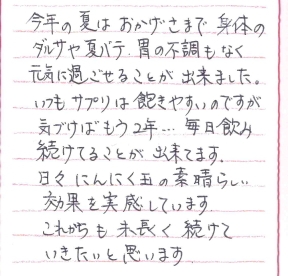 今年の夏は おかげさまで 身体の
ダルサや夏バテ、胃の不調もなく
元気に過ごせることが 出来ました。
いつも サプリは 飽きやすいのですが
気づけばもう2年… 毎日飲み
続けてることが 出来てます。
日々 にんにく玉の素晴らしい
効果を実感しています。
これからも 末長く 続けて
いきたいと思います。